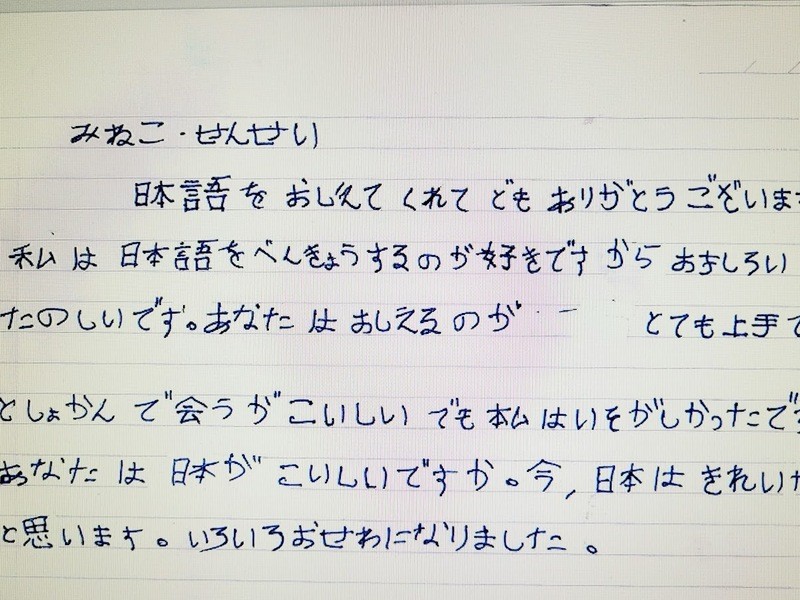 みねこ・せんせい
日本語を おしえて くれて ども ありがとうございます
私は 日本語をべんきょうするのが好きですから おもしろい
たのしいです。あなたは おしえるのが とても上手で
としょかんで会うがこいしい でも 私はいそがしかったです
あなたは 日本が こいしいですか。今, 日本は きれいだ
と思います。いろいろおせわになりました。